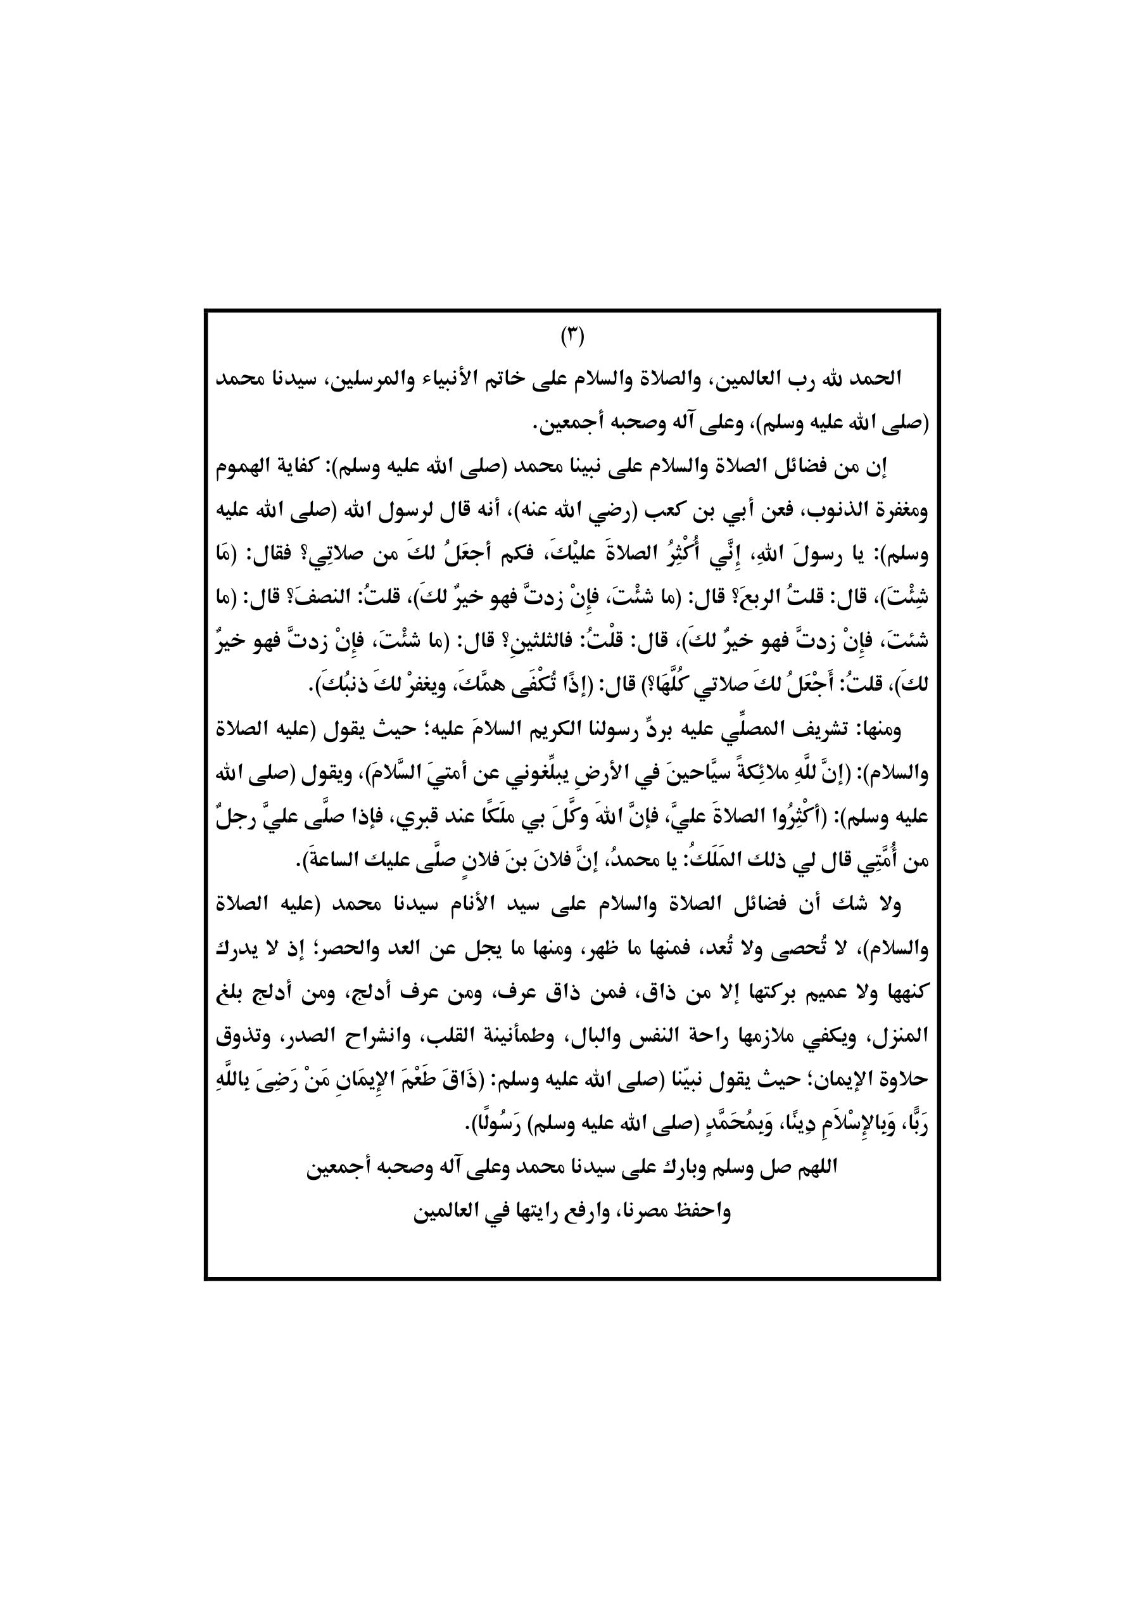 (٣)
الحمد لله رب العالمين، والصلاة والسلام على خاتم الأنبياء والمرسلين، سيدنا محمد
(صلى الله عليه وسلم)، وعلى آله وصحبه أجمعين.
إن من فضائل الصلاة والسلام على نبينا محمد (صلى الله عليه وسلم): كفاية الهموم
ومغفرة الذنوب، فعن أبي بن كعب (رضي الله عنه)، أنه قال لرسول الله (صلى الله عليه
وسلم): يا رسولَ اللهِ، إِنَّي أُكْثِرُ الصلاةَ عليْكَ، فكم أجعَلُ لكَ من صلاتِي؟ فقال: (مَا
شِئْتَ)، قال: قلتُ الربعَ؟ قال: (ما شئْتَ، فإِنْ زدتَّ فهو خيرٌ لكَ)، قلتُ: النصفَ؟ قال: (ما
شئتَ، فإِنْ زدتَّ فهو خيرٌ لكَ)، قال: قلْتُ: فالثلثينِ؟ قال: (ما شئْتَ، فإِنْ زدتَّ فهو خيرٌ
لكَ)، قلتُ: أَجْعَلُ لكَ صلاتي كُلَّهَا؟) قال: (إذًا تُكْفَى همَّكَ، ويغفرْ لكَ ذنبُكَ).
ومنها: تشريف المصلِّي عليه بردِّ رسولنا الكريم السلامَ عليه؛ حيث يقول (عليه الصلاة
والسلام): (إنَّ للَّهِ ملائِكةً سيَّاحينَ في الأرضِ يبلِّغوني عن أمتيَ السَّلامَ)، ويقول (صلى الله
عليه وسلم): (أكْثِرُوا الصلاةَ عليَّ، فإنَّ اللهَ وكَّلَ بي ملَكًا عند قبري، فإذا صلَّى عليَّ رجلٌ
من أُمَّتِي قال لي ذلك المَلَكُ: يا محمدُ، إنَّ فلانَ بنَ فلانٍ صلَّى عليك الساعةَ).
ولا شك أن فضائل الصلاة والسلام على سيد الأنام سيدنا محمد (عليه الصلاة
والسلام)، لا تُحصى ولا تُعد، فمنها ما ظهر، ومنها ما يجل عن العد والحصر؛ إذ لا يدرك
كنهها ولا عميم بركتها إلا من ذاق، فمن ذاق عرف، ومن عرف أدلج، ومن أدلج بلغ
المنزل، ويكفي ملازمها راحة النفس والبال، وطمأنينة القلب، وانشراح الصدر، وتذوق
حلاوة الإيمان؛ حيث يقول نبيّنا (صلى الله عليه وسلم: (ذَاقَ طَعْمَ الإِيمَانِ مَنْ رَضِىَ بِاللَّهِ
رَبًّا، وَبِالإِسْلاَمِ دِينًا، وَبِمُحَمَّدٍ (صلى الله عليه وسلم) رَسُولًا).
اللهم صل وسلم وبارك على سيدنا محمد وعلى آله وصحبه أجمعين
واحفظ مصرنا، وارفع رايتها في العالمين